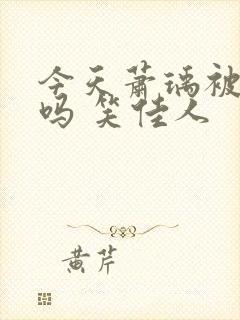 今天萧瑀被
吗 笑佳人
黄芹